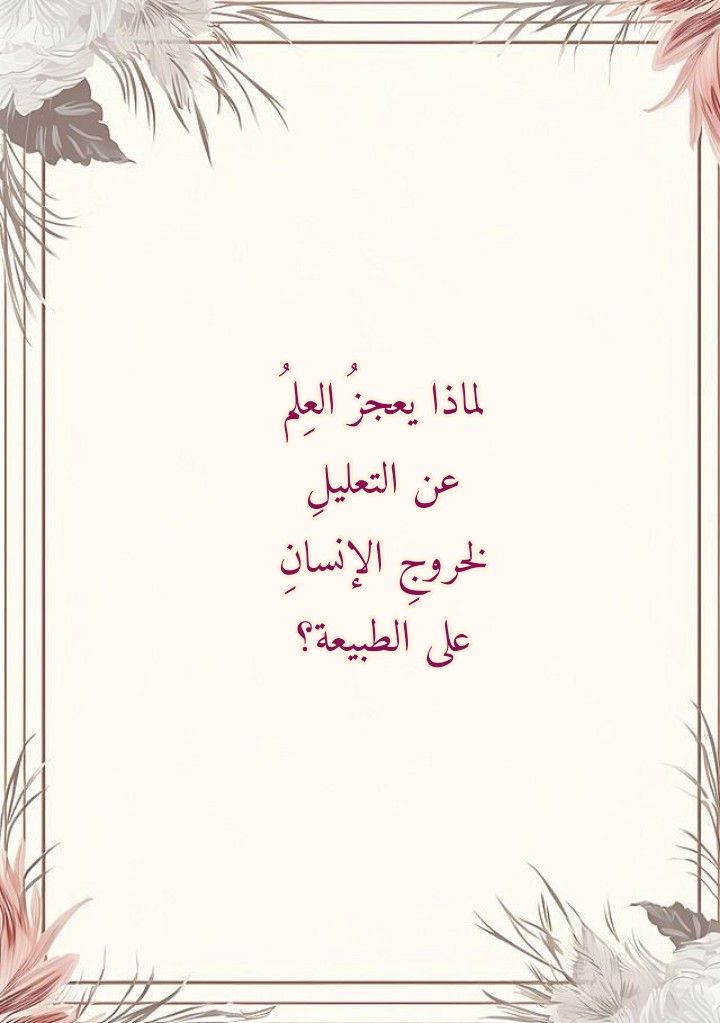 لماذا يعجزُ العِلمُ
عن التعليلِ
لخروجِ الإنسانِ
على الطبيعة؟